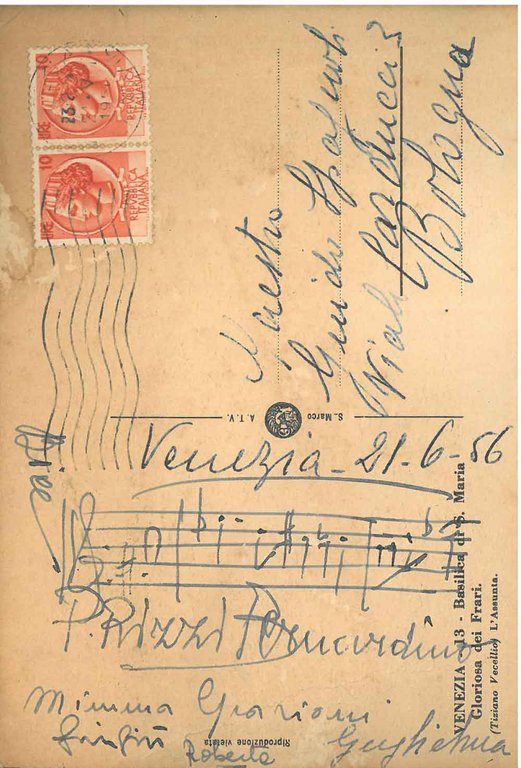 LIRE 10
REPVBBLICA
ITALIANA
LIRE 10
REPVBBLICA
ITALIANA
Maestro
Guido
Viale Carducci 3
Bologna
S. Marco A. T. V.
Venezia - 21-6-56
P. RIZZI Bernardino
VENEZIA - 13 - Basilica di S. Maria
Gloriosa dei Frari.
(Tiziano Vecellio) L'Assunta.
Mimma Grazioni
Roberta
Guglielma
Riproduzione vietata